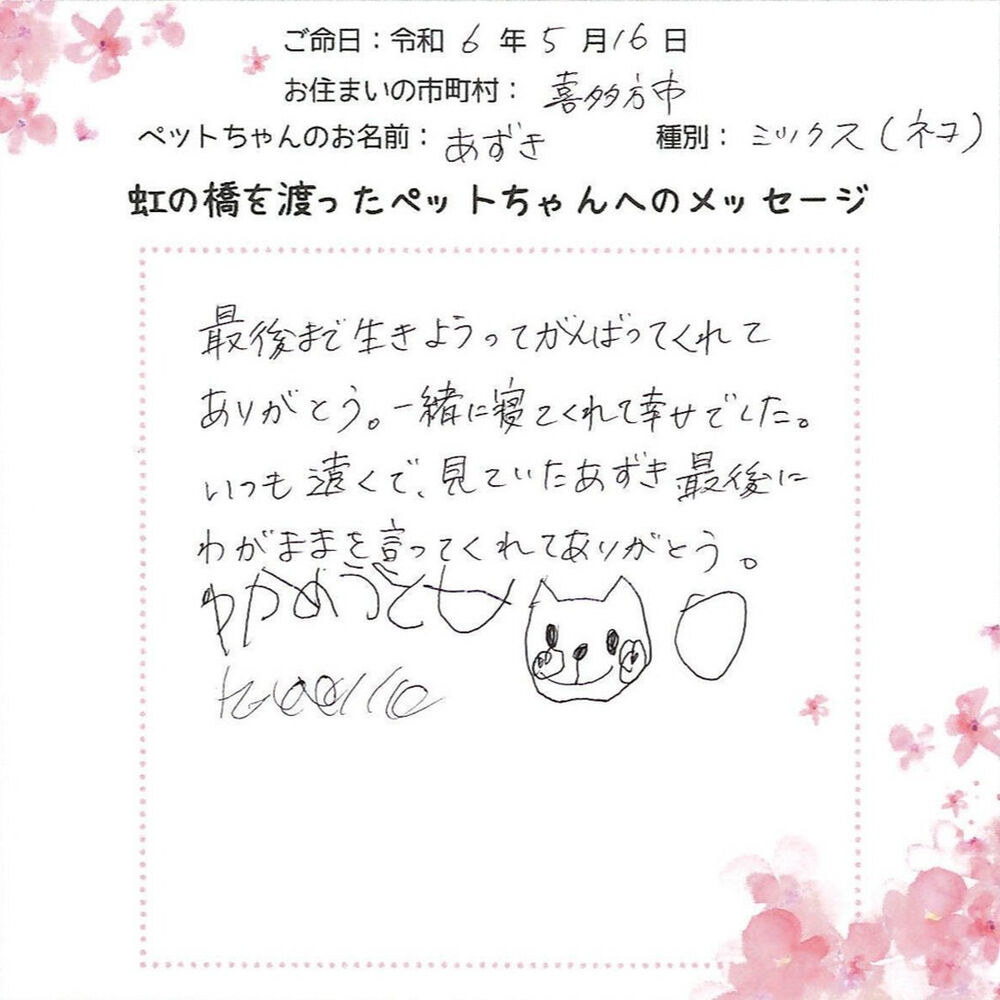 ご命日：令和 6 年 5 月16 日
お住まいの市町村： 喜多方市
ペットちゃんのお名前： あずき 種別： ミックス(ネコ)
虹の橋を渡ったペットちゃんへのメッセージ
最後まで生きようってがんばってくれて
ありがとう。一緒に寝てくれて幸せでした。
いつも遠くで、見ていたあずき最後に
わがままを言ってくれてありがとう。